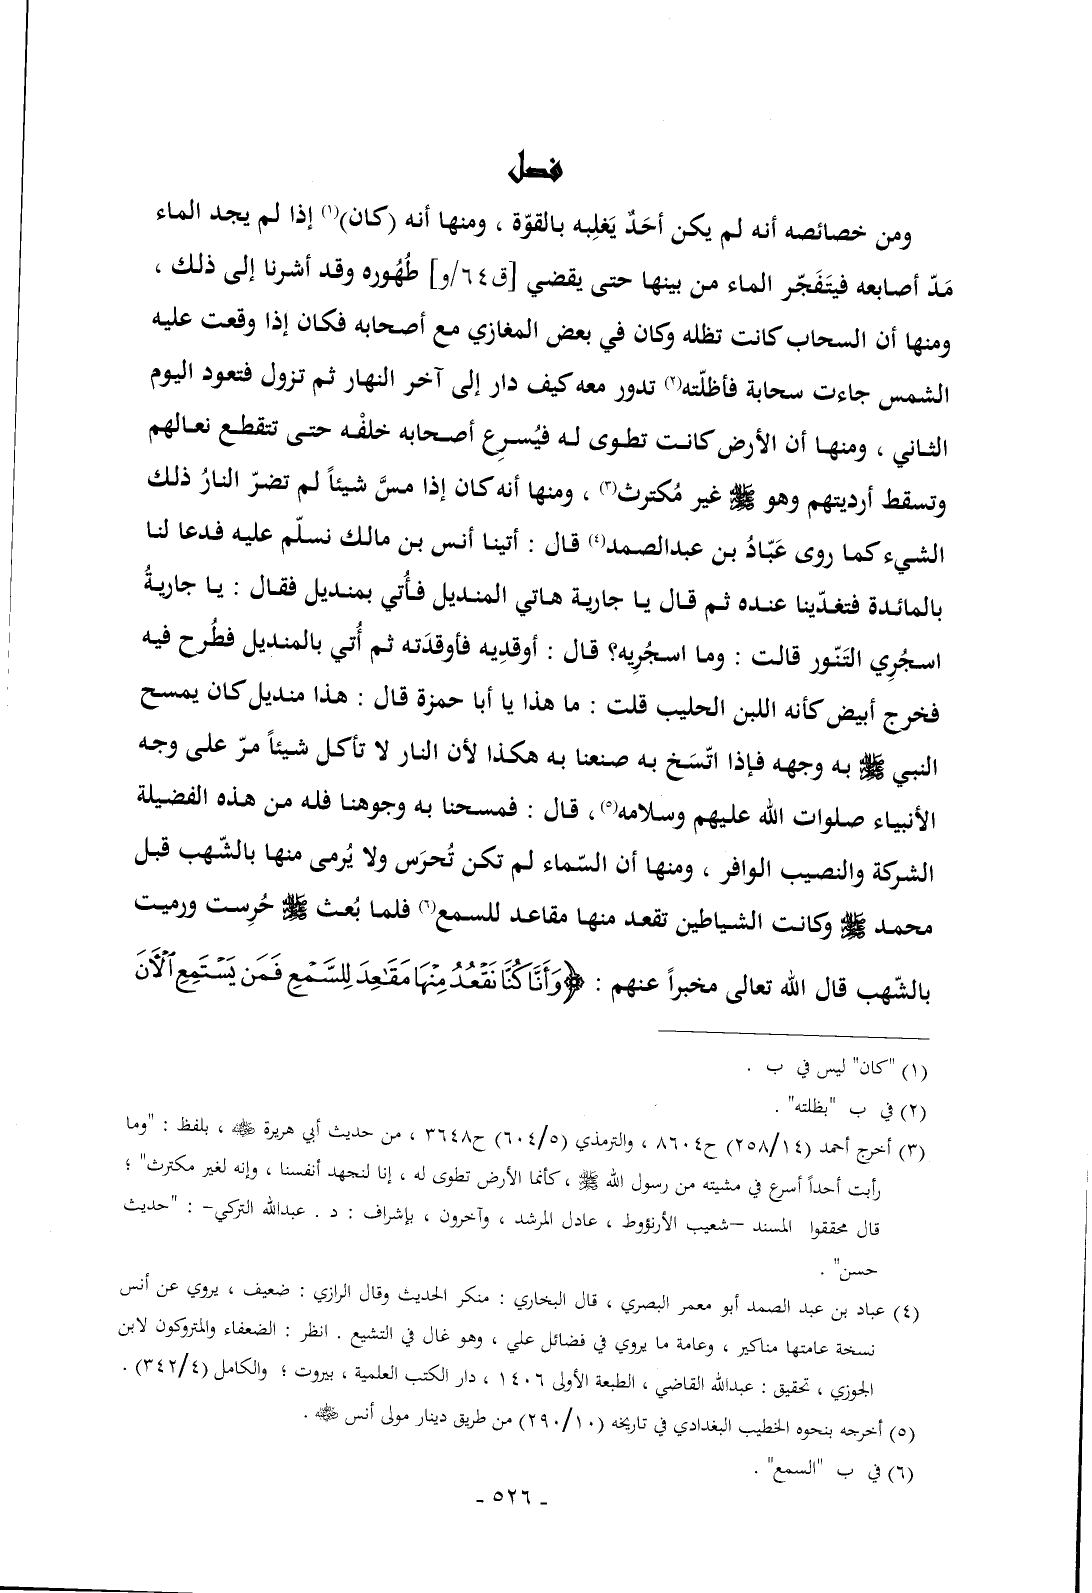 فصل
ومن خصائصه أنه لم يكن أحَدٌ يَغلِبه بالقوّة ، ومنها أنه (كان)(١) إذا لم يجد الماء
مَدّ أصابعه فيتَفَجّر الماء من بينها حتى يقضي [ق٦٤/و] طُهُوره وقد أشرنا إلى ذلك ،
ومنها أن السحاب كانت تظله وكان في بعض المغازي مع أصحابه فكان إذا وقعت عليه
الشمس جاءت سحابة فأظلّته(٢) تدور معه كيف دار إلى آخر النهار ثم تزول فتعود اليوم
الثاني ، ومنها أن الأرض كانت تطوى له فيُسرِع أصحابه خلفْه حتى تتقطع نعالهم
وتسقط أرديتهم وهو ﷺ غير مُكترث(٣) ، ومنها أنه كان إذا مسَّ شيئاً لم تضرّ النارُ ذلك
الشيء كما روى عَبّادُ بن عبدالصمد(٤) قال : أتينا أنس بن مالك نسلّم عليه فدعا لنا
بالمائدة فتغدّينا عنده ثم قال يا جارية هاتي المنديل فأُتي بمنديل فقال : يا جاريةُ
اسجُرِي التَنّور قالت : وما اسجُرِيه؟ قال : أوقدِيه فأوقدَته ثم أُتي بالمنديل فطُرح فيه
فخرج أبيض كأنه اللبن الحليب قلت : ما هذا يا أبا حمزة قال : هذا منديل كان يمسح
النبي ﷺ به وجهه فإذا اتّسَخ به صنعنا به هكذا لأن النار لا تأكل شيئاً مرّ على وجه
الأنبياء صلوات الله عليهم وسلامه(٥) ، قال : فمسحنا به وجوهنا فله من هذه الفضيلة
الشركة والنصيب الوافر ، ومنها أن السّماء لم تكن تُحرَس ولا يُرمى منها بالشّهب قبل
محمد ﷺ وكانت الشياطين تقعد منها مقاعد للسمع(٦) فلما بُعث ﷺ حُرِست ورميت
بالشّهب قال الله تعالى مخبراً عنهم : ﴿وَأَنَّا كُنَّا نَقْعُدُ مِنْهَا مَقَٰعِدَ لِلسَّمْعِ فَمَن يَسْتَمِعِ ٱلْآنَ
(١) "كان" ليس في ب .
(٢) في ب "بظلته" .
(٣) أخرج أحمد (٢٥٨/١٤) ح٨٦٠٤ ، والترمذي (٦٠٤/٥) ح٣٦٤٨ ، من حديث أبي هريرة ﷺ ، بلفظ : "وما
رأيت أحداً أسرع في مشيته من رسول الله ﷺ ، كأنما الأرض تطوى له ، إنا لنجهد أنفسنا ، وإنه لغير مكترث" ؛
قال محققوا المسند –شعيب الأرنؤوط ، عادل المرشد ، وآخرون ، بإشراف : د . عبدالله التركي- : "حديث
حسن" .
(٤) عباد بن عبد الصمد أبو معمر البصري ، قال البخاري : منكر الحديث وقال الرازي : ضعيف ، يروي عن أنس
نسخة عامتها مناكير ، وعامة ما يروي في فضائل علي ، وهو غال في التشيع . انظر : الضعفاء والمتروكون لابن
الجوزي ، تحقيق : عبدالله القاضي ، الطبعة الأولى ١٤٠٦ ، دار الكتب العلمية ، بيروت ؛ والكامل (٣٤٢/٤) .
(٥) أخرجه بنحوه الخطيب البغدادي في تاريخه (٢٩٠/١٠) من طريق دينار مولى أنس ﷺ .
(٦) في ب "السمع" .
- ٥٢٦ -